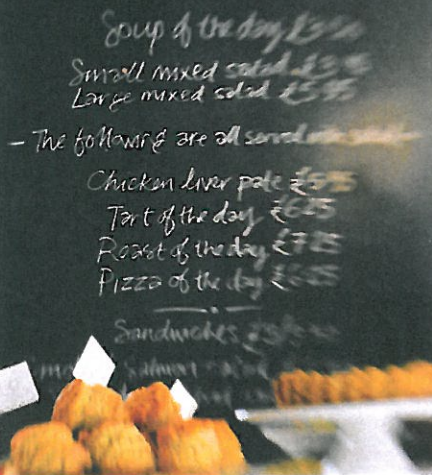 Soup of the day
Small mixed salad
Large mixed salad £5.95
The following are all served with salad
Chicken liver pate £5.95
Tart of the day £6.25
Roast of the day £7.25
Pizza of the day £6.25
Sandwiches
Salmon